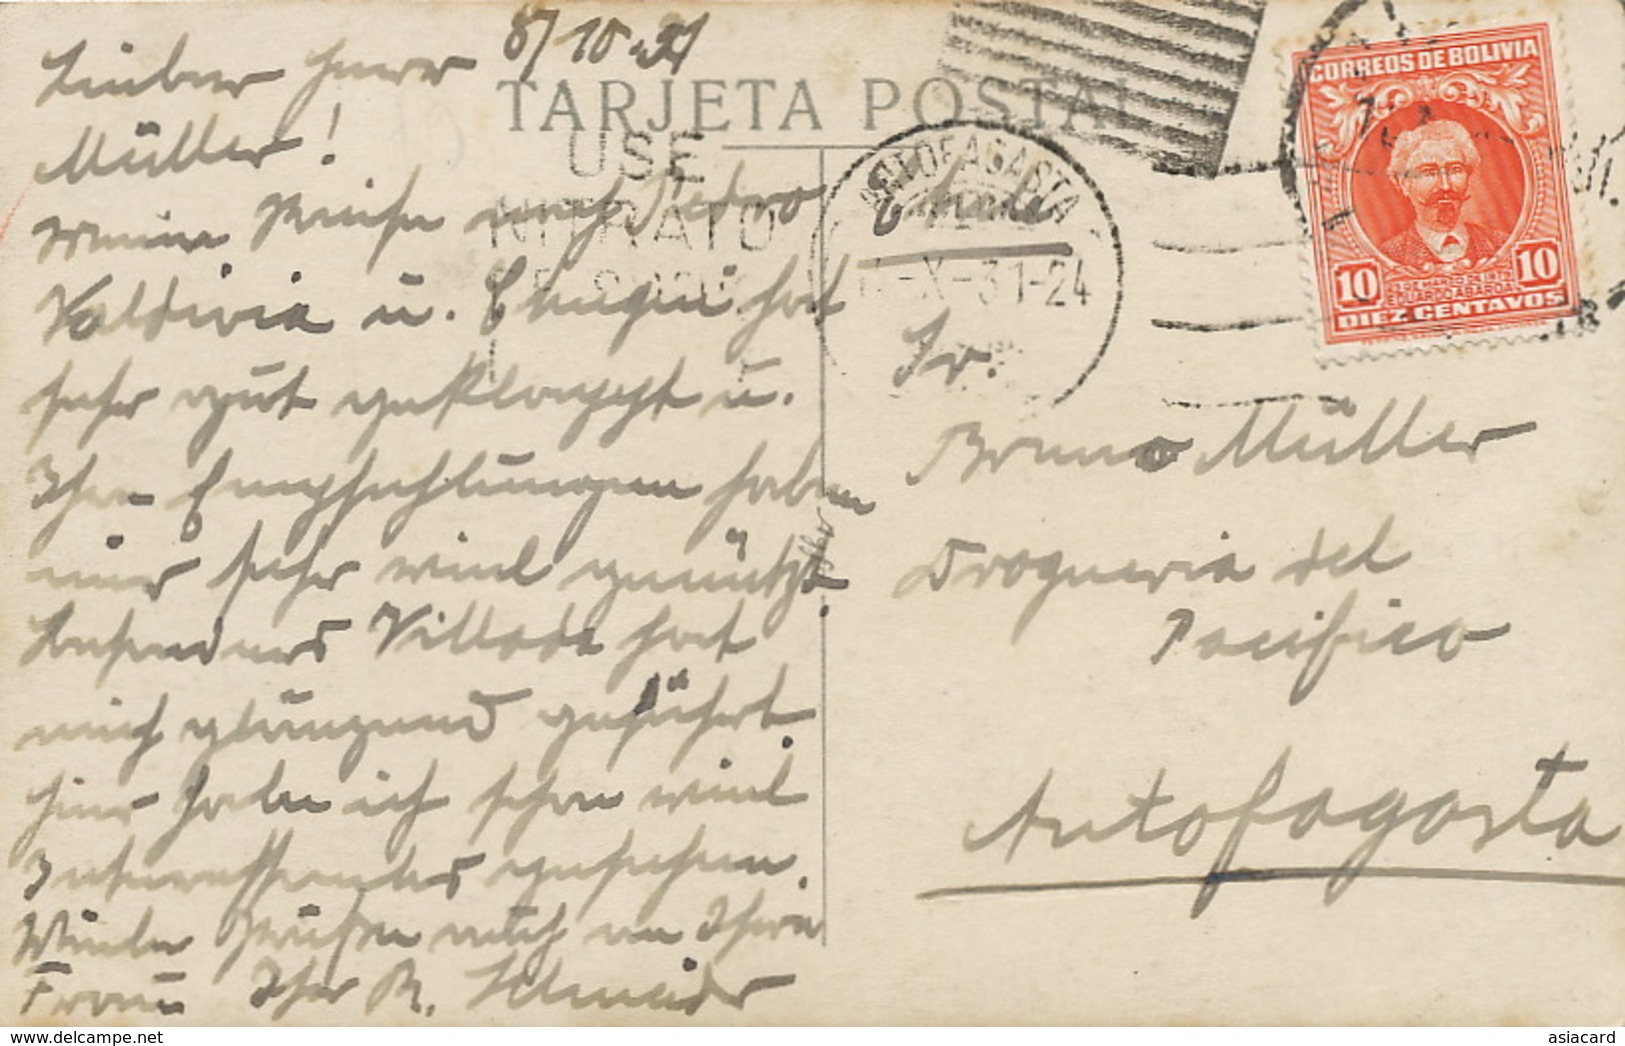 8/10-31
Lieber Herr
Müller!
Meine Reise nach Pedro
Valdivia u. hat
sehr gut geklappt u.
Ihre Empfehlungen haben
mir sehr viel genützt.
Besonders hat
mich glänzend geführt.
Hier habe ich schon viel
Interessantes gesehen.
Viele Grüße auch an Ihre
Frau Ihr R. Schneider
TARJETA POSTAL
USE
NITRATO
ANTOFAGASTA
CHILE
-X-31-24
Chile
Sr.
Bruno Müller
Drogueria del
Pacifico
Antofagasta
CORREOS DE BOLIVIA
10 10
23 DE MARZO DE 1879
EDUARDO ABAROA
DIEZ CENTAVOS
https://www.delcampe.net
asiacard